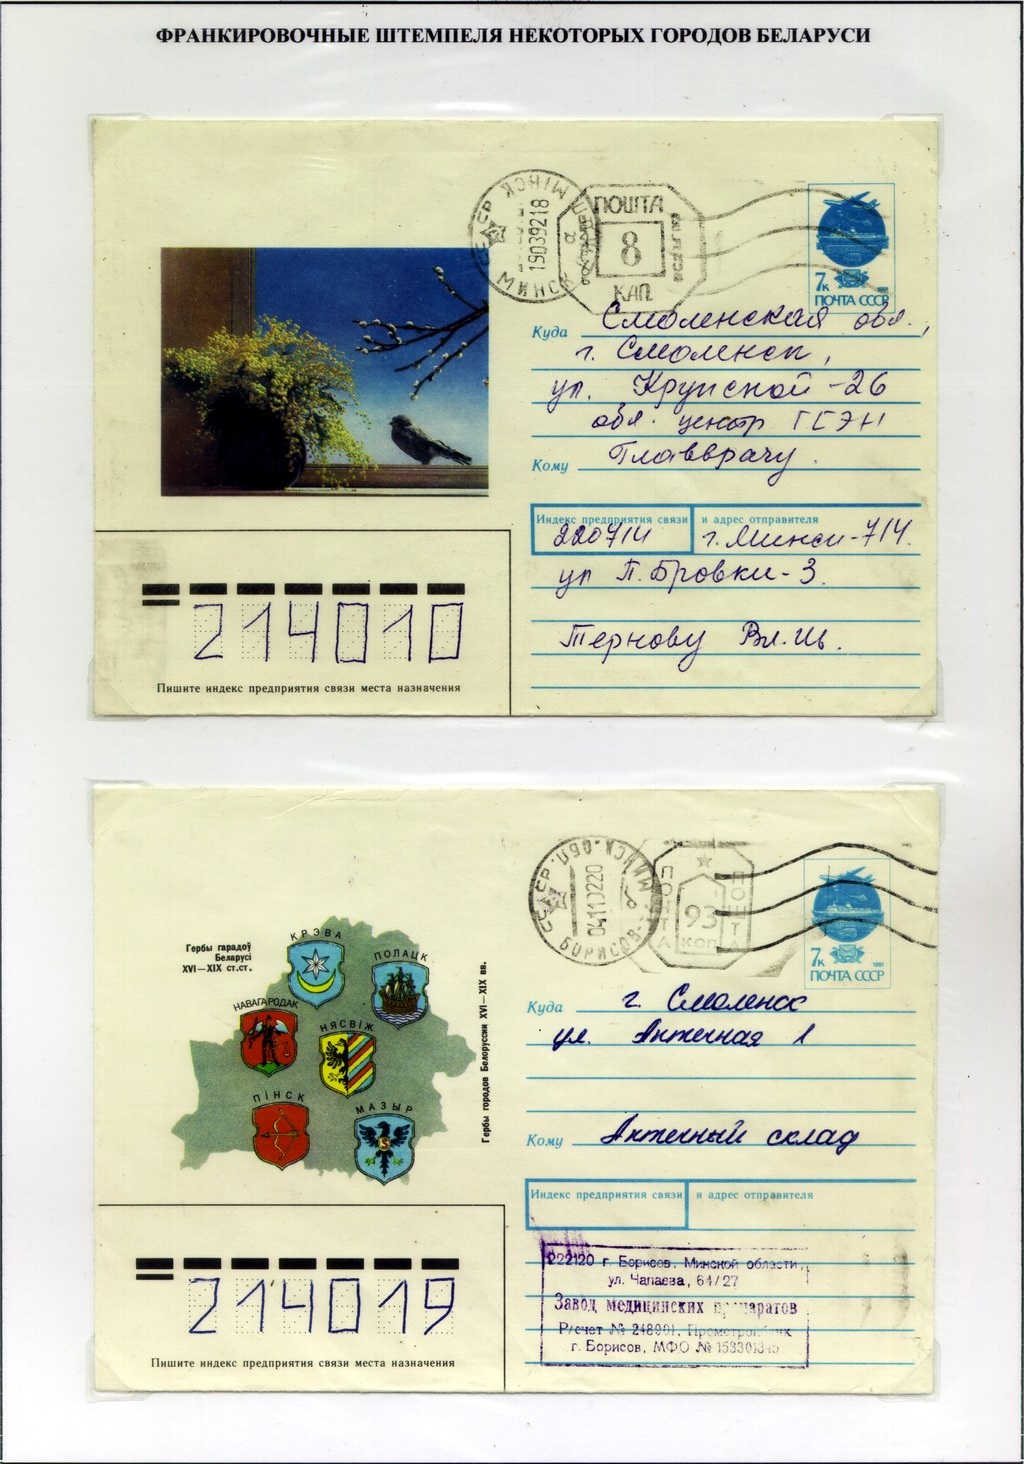 ФРАНКИРОВОЧНЫЕ ШТЕМПЕЛЯ НЕКОТОРЫХ ГОРОДОВ БЕЛАРУСИ
СССР МІНСК
МИНСК
19039218
ПОШТА
8
КАП.
7к
1991
ПОЧТА СССР
Куда Смоленская обл.,
г. Смоленск,
ул. Крупской-26
обл. центр ГСЭН
Кому Главврачу.
Индекс предприятия связи и адрес отправителя
220714 г. Минск-714.
ул П. Бровки-3.
Тернову Вл. Ив.
214010
Пишите индекс предприятия связи места назначения
СССР МИНСК. ОБЛ.
БОРИСОВ-
ПОШТА
93
КОП
ПОШТА
7к
1991
ПОЧТА СССР
Гербы гарадоў
Беларусі
XVI—XIX ст.ст.
КРЭВА
ПОЛАЦК
НАВАГАРОДАК
НЯСВІЖ
ПІНСК
МАЗЫР
Гербы городов Белоруссии XVI—XIX вв.
Куда г. Смоленск
ул. Аптечная 1
Кому Аптечный склад
Индекс предприятия связи и адрес отправителя
222120 г. Борисов, Минской области,
ул. Чапаева, 64/27
Завод медицинских препаратов
Р/счет № 248001,
г. Борисов, МФО №
214019
Пишите индекс предприятия связи места назначения